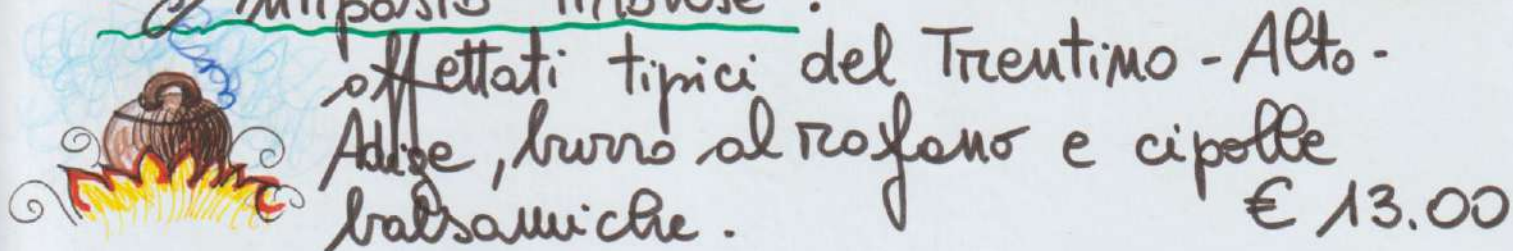 antipasto
affettati tipici del Trentino-Alto-
Adige, burro al rafano e cipolle
balsamiche.
€ 13.00